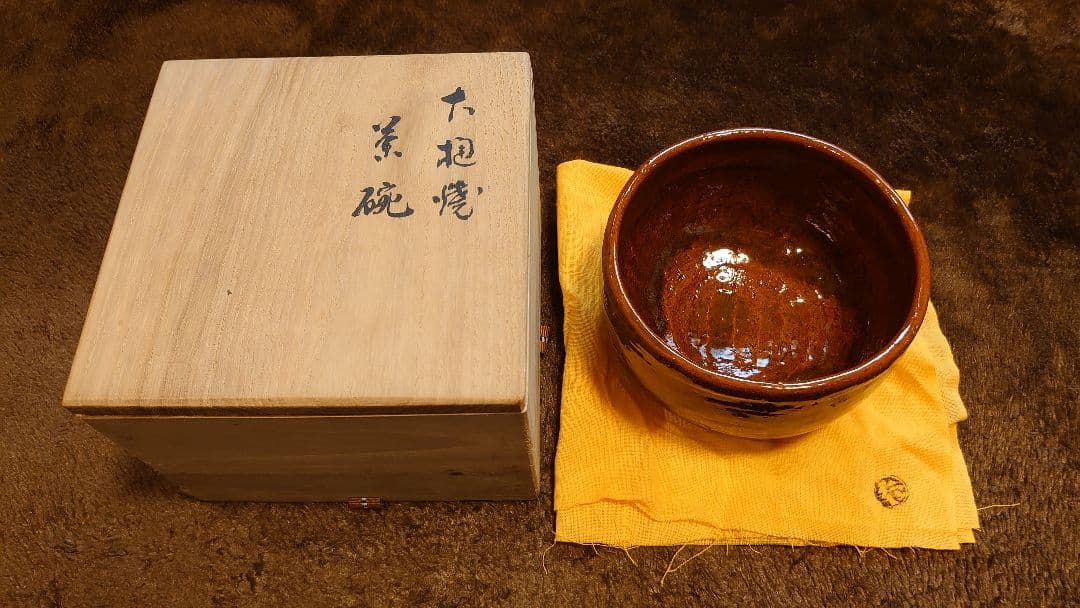 大樋焼
茶碗